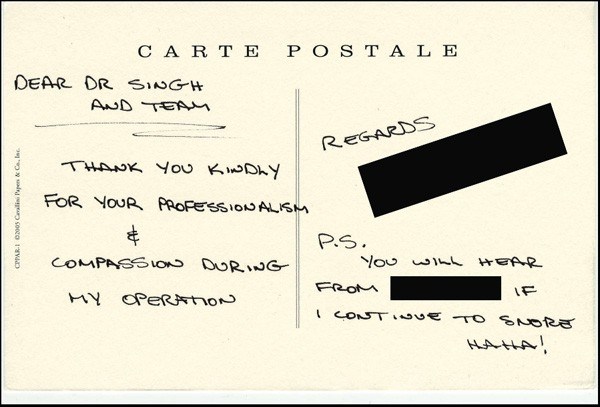 CARTE POSTALE
DEAR DR SINGH
AND TEAM
THANK YOU KINDLY
FOR YOUR PROFESSIONALISM
&
COMPASSION DURING
MY OPERATION
REGARDS
P.S.
YOU WILL HEAR
FROM IF
I CONTINUE TO SNORE
HAHA!
CPPAR-1 ©2005 Cavallini Papers & Co., Inc.